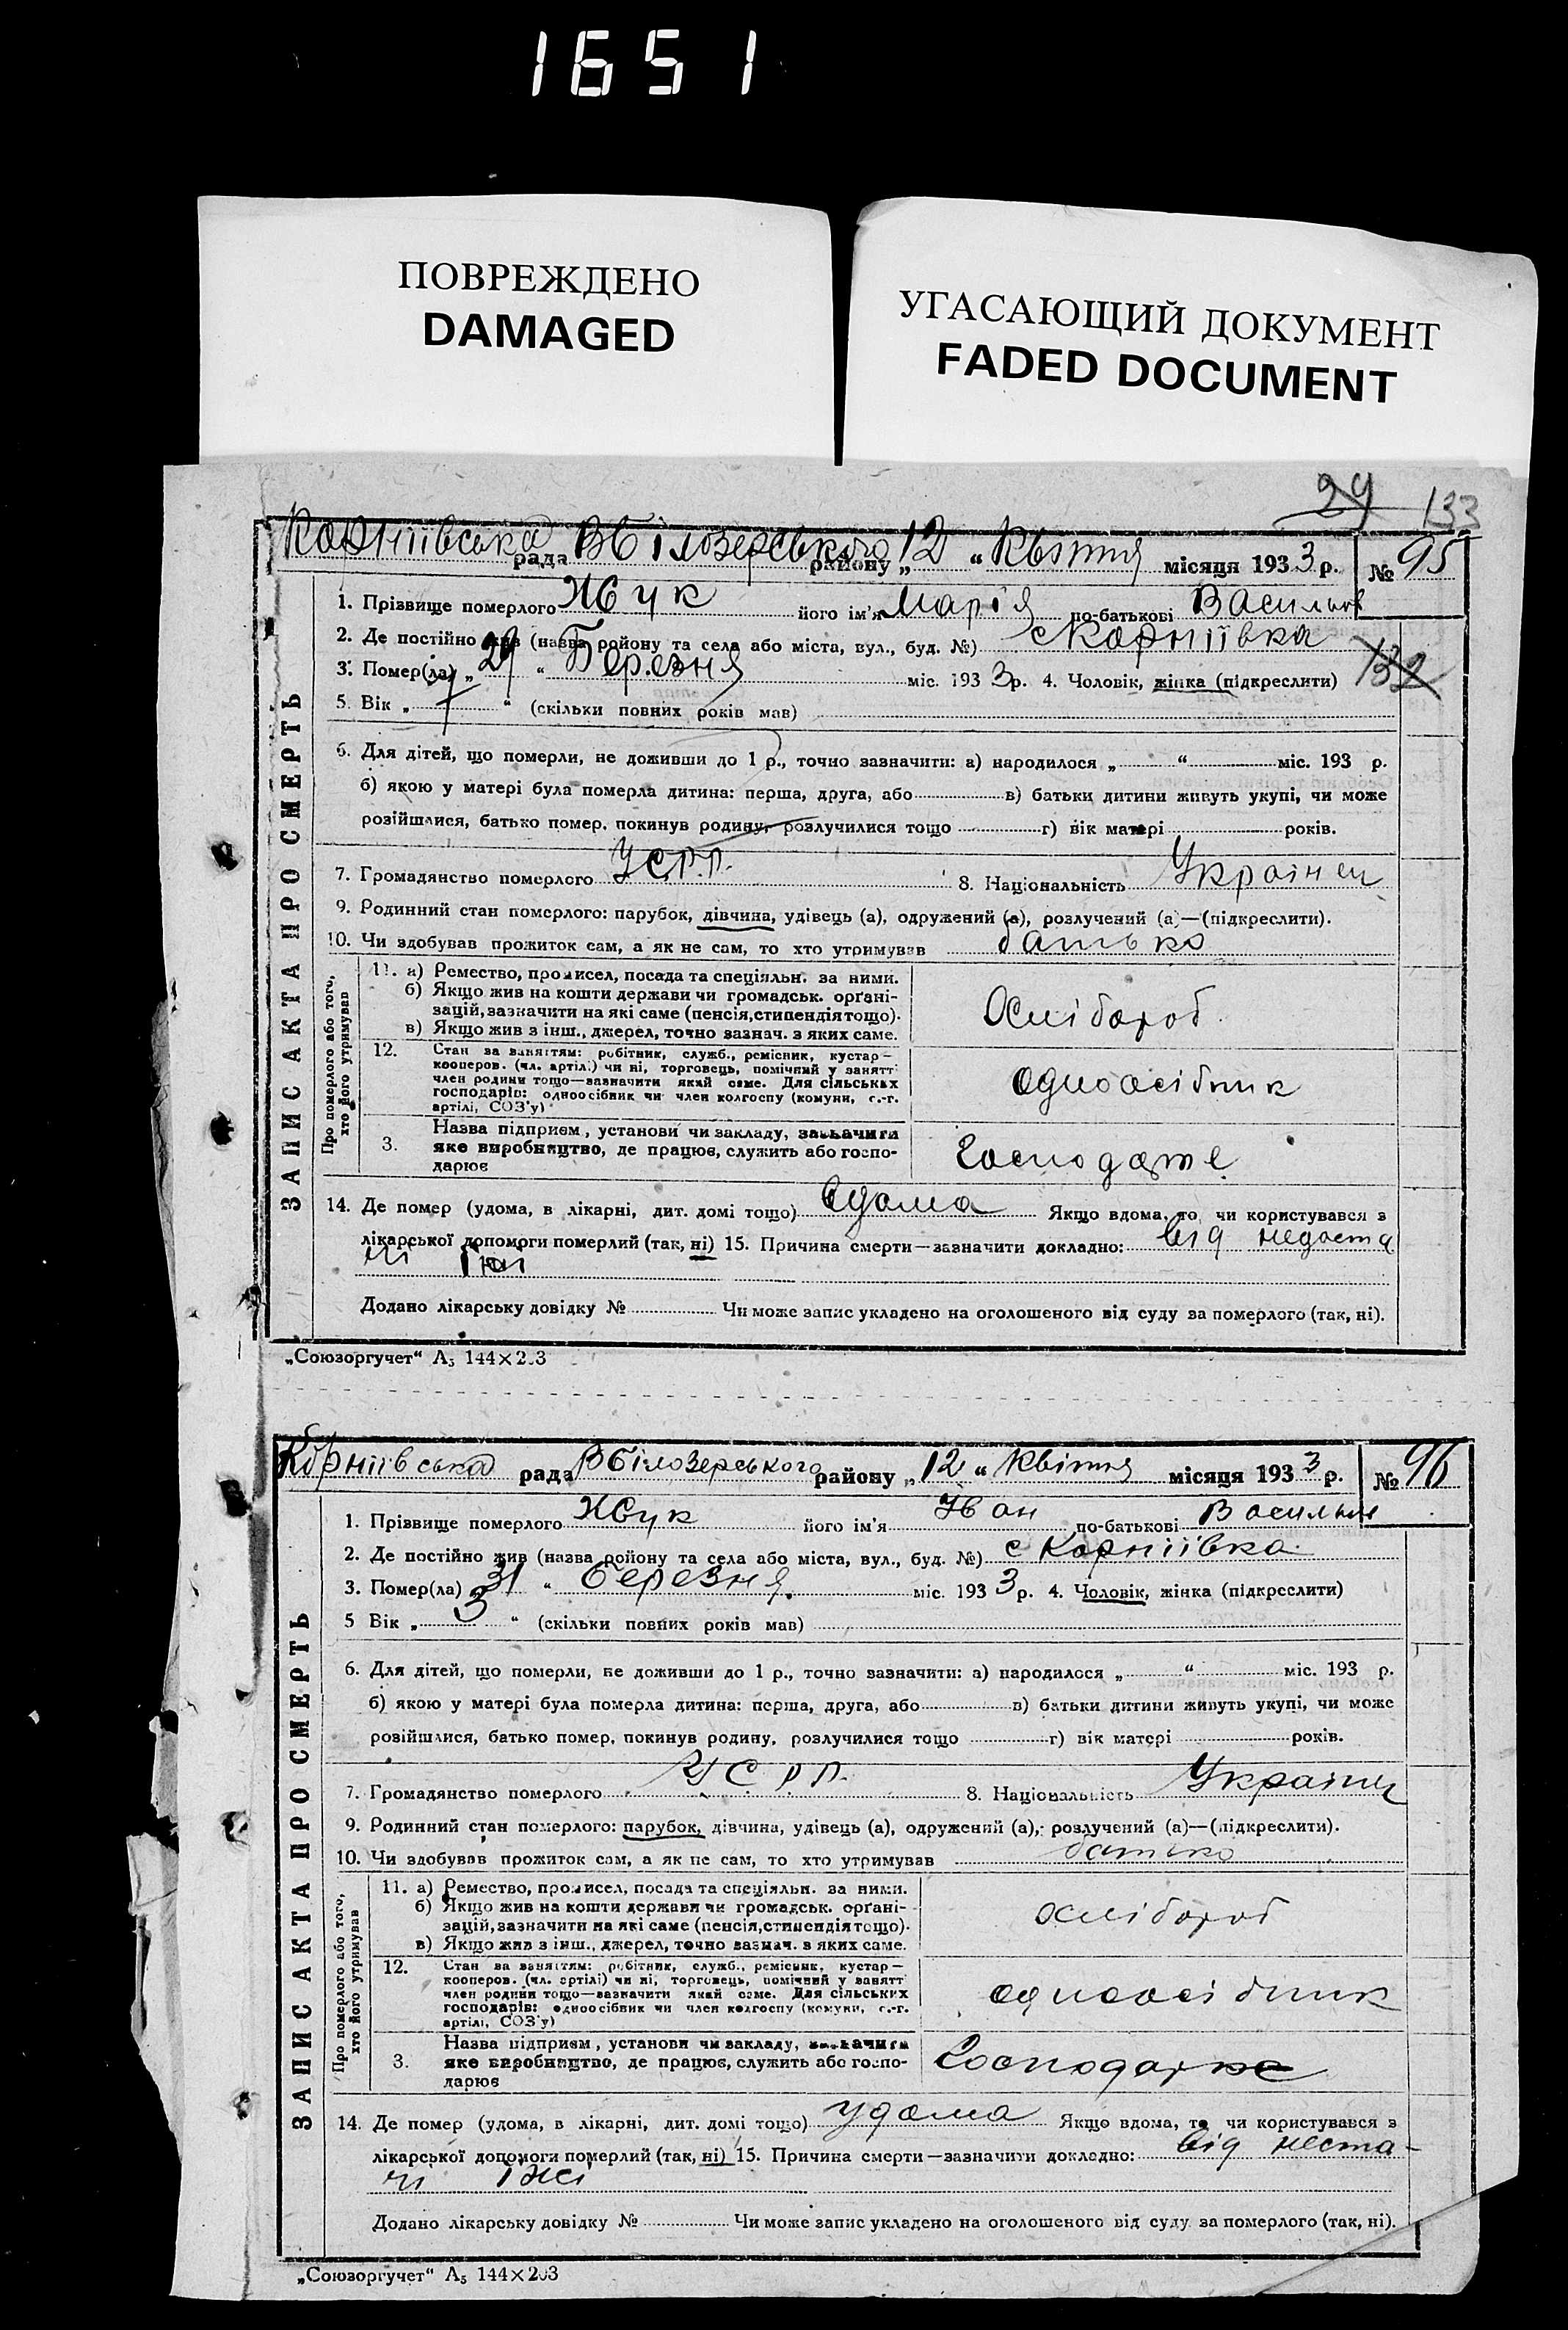 1651
ПОВРЕЖДЕНО
DAMAGED
УГАСАЮЩИЙ ДОКУМЕНТ
FADED DOCUMENT
29 133
Корніївська рада ВБілозерського району „12“ Квітня місяця 1933 р. № 95
ЗАПИС АКТА ПРО СМЕРТЬ
1. Прізвище померлого Жук його ім'я Марія по-батькові Васильов
2. Де постійно жив (назва ройону та села або міста, вул., буд. №) с Корніївка
3. Помер(ла) „29“ Березня міс. 1933 р. 4. Чоловік, жінка (підкреслити) 132
5. Вік „7“ (скільки повних років мав)
6. Для дітей, що померли, не доживши до 1 р., точно зазначити: а) народилося „ “ міс. 193 р.
б) якою у матері була померла дитина: перша, друга, або в) батьки дитини живуть укупі, чи може
розійшлися, батько помер, покинув родину, розлучилися тощо г) вік матері років.
7. Громадянство померлого УСРР. 8. Національність Українец
9. Родинний стан померлого: парубок, дівчина, удівець (а), одружений (а), розлучений (а)—(підкреслити).
10. Чи здобував прожиток сам, а як не сам, то хто утримував батько
Про померлого або того, хто його утримував
11. а) Ремество, промисел, посада та спеціяльн. за ними.
б) Якщо жив на кошти держави чи громадськ. орґані-
зацій, зазначити на які саме (пенсія, стипендія тощо).
в) Якщо жив з інш., джерел, точно зазнач. з яких саме.
Хлібороб
12. Стан за заняттям: робітник, служб., ремісник, кустар—
кооперов. (чл. артілі) чи ні, торговець, помічний у занятт
член родини тощо—зазначити який саме. Для сільських
господарів: одноосібник чи член колгоспу (комуни, с.-г.
артілі, СОЗ'у)
одноосібник
3. Назва підприєм, установи чи закладу, зазначити
яке виробництво, де працює, служить або госпо-
дарює
14. Де помер (удома, в лікарні, дит. домі тощо) вдома Якщо вдома, то чи користувався з
лікарської допомоги померлий (так, ні) 15. Причина смерти—зазначити докладно: від недоста
чі їжі
Додано лікарську довідку № Чи може запис укладено на оголошеного від суду за померлого (так, ні).
„Союзоргучет“ А5 144×203
Корніївська рада ВБілозерського району „12“ Квітня місяця 1933 р. № 96
ЗАПИС АКТА ПРО СМЕРТЬ
1. Прізвище померлого Жук його ім'я Іван по-батькові
2. Де постійно жив (назва ройону та села або міста, вул., буд. №) с Корніївка
3. Помер(ла) 31 “ березня міс. 1933 р. 4. Чоловік, жінка (підкреслити)
5 Вік „3“ (скільки повних років мав)
6. Для дітей, що померли, не доживши до 1 р., точно зазначити: а) народилося „ “ міс. 193 р.
б) якою у матері була померла дитина: перша, друга, або в) батьки дитини живуть укупі, чи може
розійшлися, батько помер, покинув родину, розлучилися тощо г) вік матері років.
7. Громадянство померлого УСРР. 8. Національність Українец
9. Родинний стан померлого: парубок, дівчина, удівець (а), одружений (а), розлучений (а)—(підкреслити).
10. Чи здобував прожиток сам, а як не сам, то хто утримував батько
Про померлого або того, хто його утримував
11. а) Ремество, промисел, посада та спеціяльн. за ними.
б) Якщо жив на кошти держави чи громадськ. орґані-
зацій, зазначити на які саме (пенсія, стипендія тощо).
в) Якщо жив з інш., джерел, точно зазнач. з яких саме.
хлібороб
12. Стан за заняттям: робітник, служб., ремісник, кустар—
кооперов. (чл. артілі) чи ні, торговець, помічний у занятт
член родини тощо—зазначити який саме. Для сільських
господарів: одноосібник чи член колгоспу (комуни, с.-г.
артілі, СОЗ'у)
одноосібник
3. Назва підприєм, установи чи закладу, зазначити
яке виробництво, де працює, служить або госпо-
дарює
14. Де помер (удома, в лікарні, дит. домі тощо) удома Якщо вдома, то чи користувався з
лікарської допомоги померлий (так, ні) 15. Причина смерти—зазначити докладно: від неста-
чі їжі
Додано лікарську довідку № Чи може запис укладено на оголошеного від суду за померлого (так, ні).
„Союзоргучет“ А5 144×203